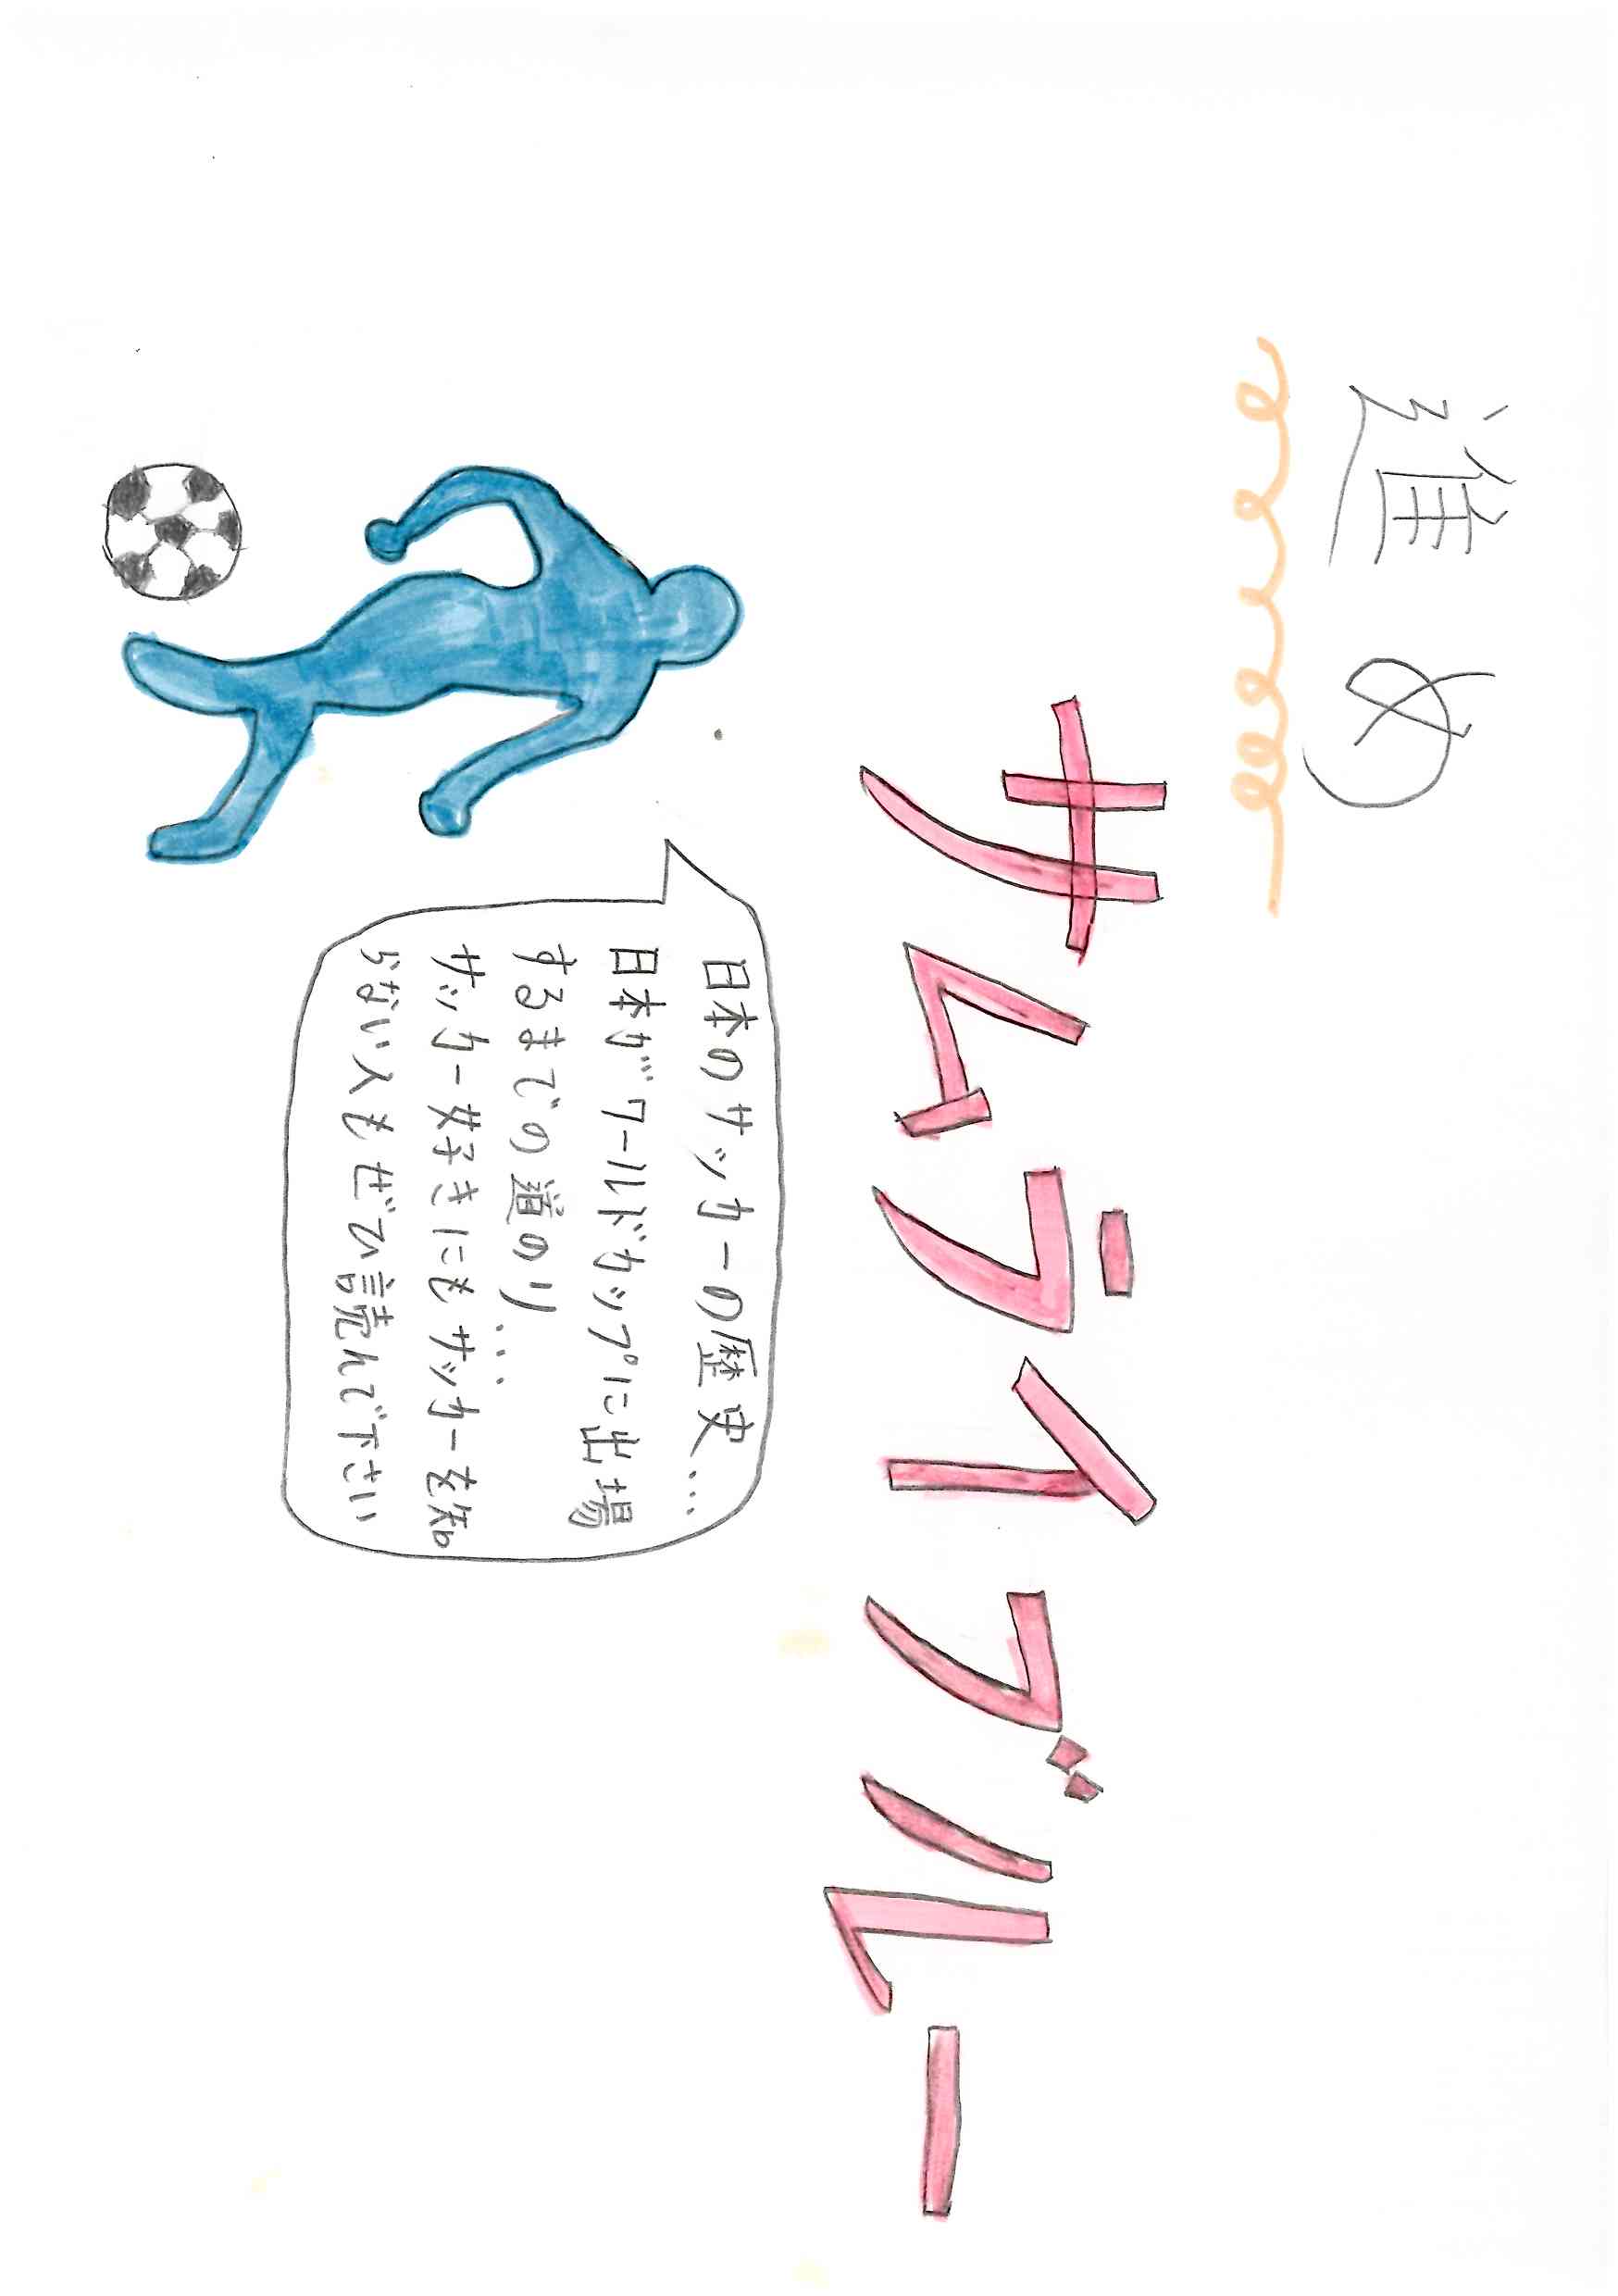 進め
サムライブルー
日本のサッカーの歴史...
日本がワールドカップに出場
するまでの道のり...
サッカー好きにもサッカーを知
らない人もぜひ読んで下さい